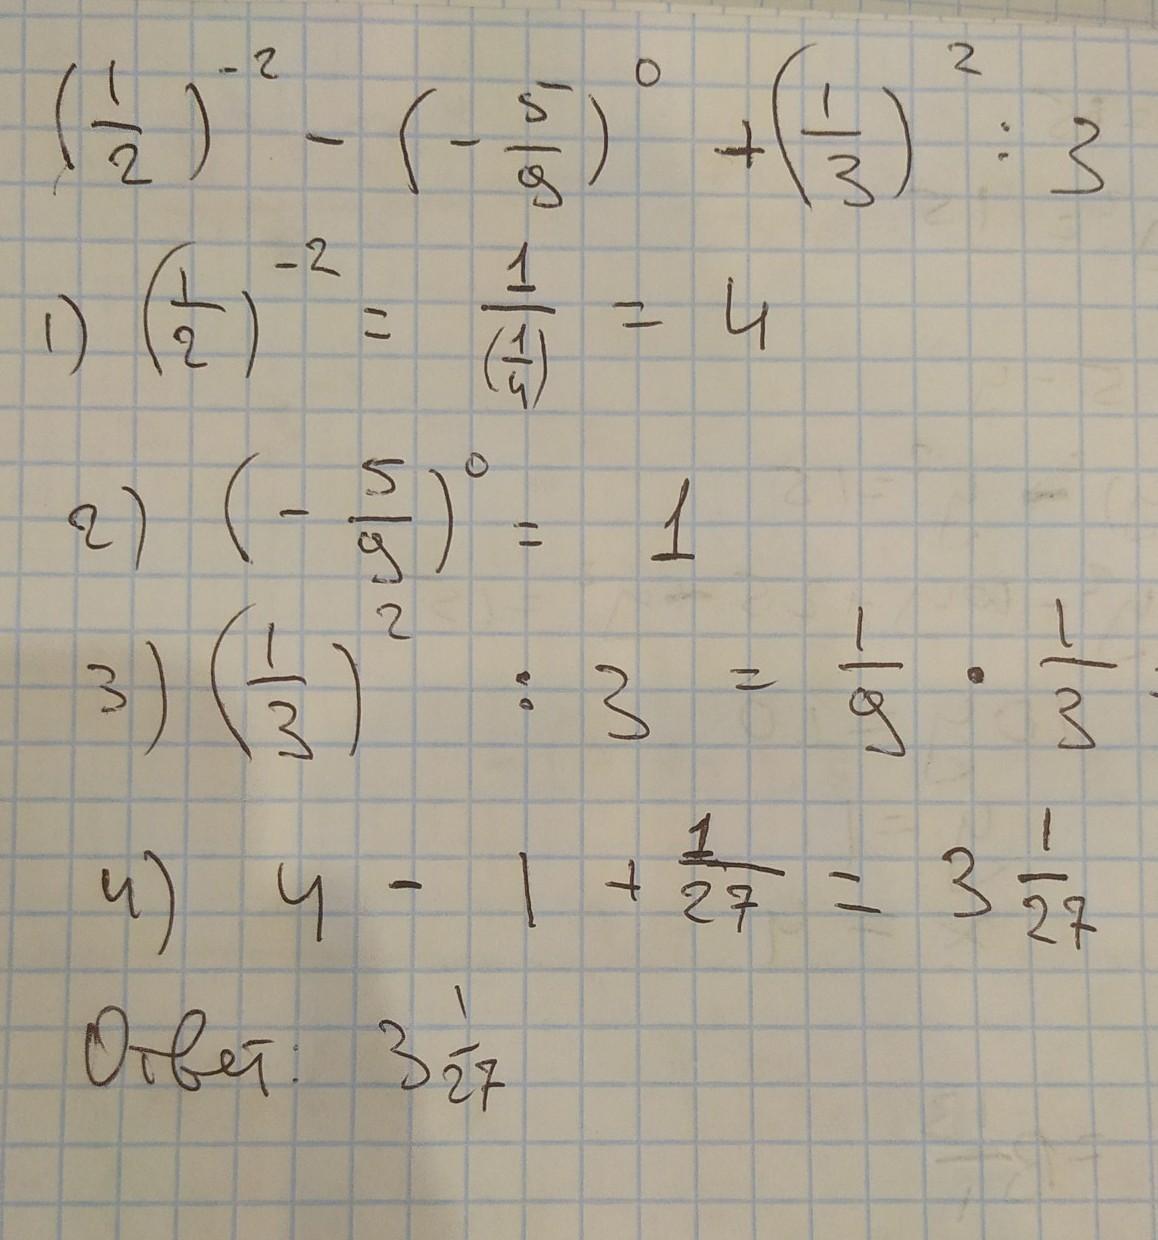 (1/2)^-2 - (-5/9)^0 + (1/3)^2 : 3
1) (1/2)^-2 = 1/(1/4) = 4
2) (-5/9)^0 = 1
3) (1/3)^2 : 3 = 1/9 · 1/3 =
4) 4 - 1 + 1/27 = 3 1/27
Ответ: 3 1/27